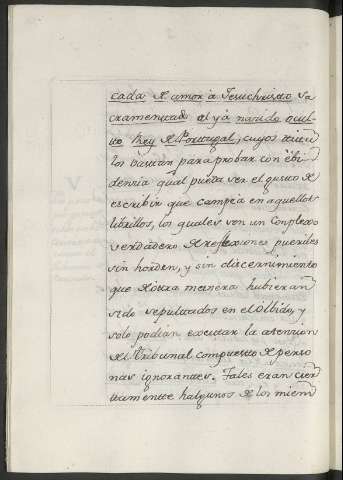 cada de amor à Jesuchristo Sa
cramentado el yà nacido ocul-
to Rey de Portugal, cuyos titu
los bastan para probar con ebi
dencia qual pueda ser el gusto de
escribir que campèa en aquellos
librillos, los quales son un Conplexo
verdadero de reflexiones pueriles
sin horden, y sin discernimiento
que de otra manera hubieran
sido sepultados en el Olbido, y
solo podian executar la atension
del Tribunal compuesto de perso
nas ignorantes. Tales eran cier
ttamentte halgunos de los miem